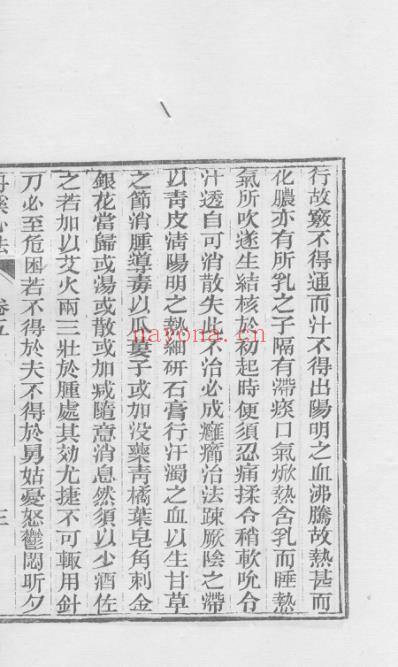 行故竅不得通而汁不得出陽明之血沸騰故熱甚而
化膿亦有所乳之子膈有滯痰口氣焮熱含乳而睡熱
氣所吹遂生結核於初起時便須忍痛揉令稍軟吮令
汁透自可消散失此不治必成癰癤治法疎厥陰之滯
以青皮清陽明之熱細研石膏行汙濁之血以生甘草
之節消腫導毒以瓜蔞子或加没藥青橘葉皂角刺金
銀花當歸或湯或散或加减隨意消息然須以少酒佐
之若加以艾火兩三壯於腫處其効尤捷不可輙用針
刀必至危困若不得於夫不得於舅姑憂怒鬱悶昕夕
丹溪心法
卷五
三
nayona.cn